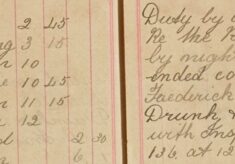 2 45
3 15
10
10 45
11 15
12
2 30
6
Duty by
Re the
by nigh
ended co
Faederick
Drunk
with Insp
136 at 12